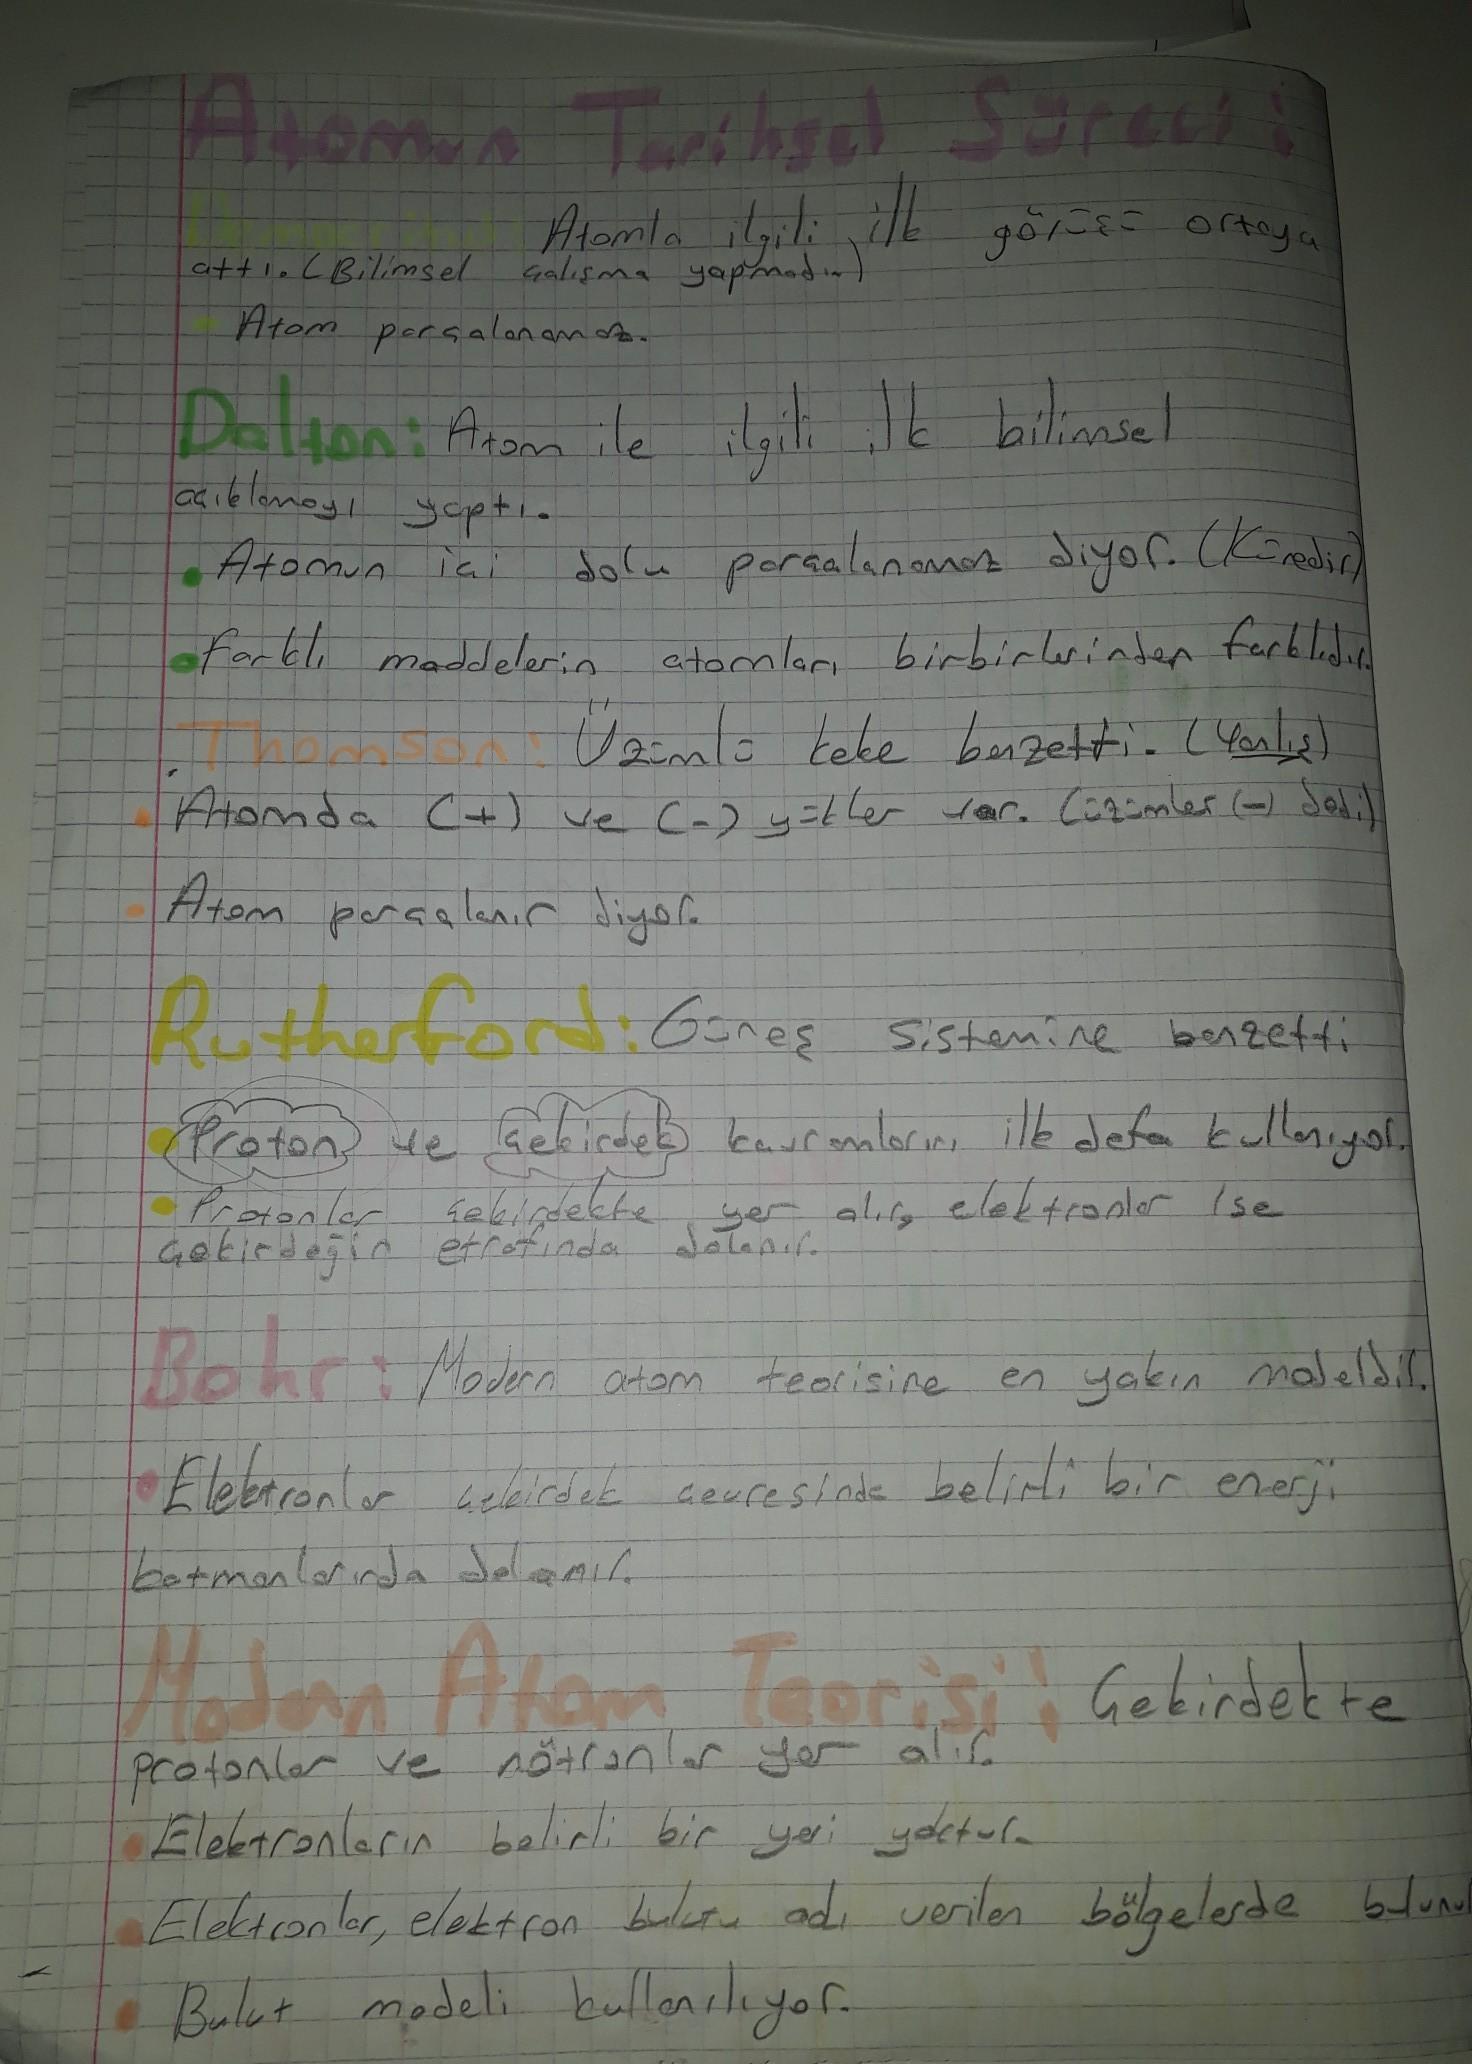 Atomun Tarihsel Süreci:
Democritus: Atomla ilgili ilk görüşü ortaya
attı. (Bilimsel çalışma yapmadı)
• Atom parçalanamaz.
Dalton: Atom ile ilgili ilk bilimsel
açıklamayı yaptı.
• Atomun içi dolu parçalanamaz diyor. (Küredir)
• Farklı maddelerin atomları birbirlerinden farklıdır.
Thomson: Üzümlü keke benzetti. (Yanlış)
• Atomda (+) ve (-) yükler var. (üzümler (-) dedi)
• Atom parçalanır diyor.
Rutherford: Güneş sistemine benzetti
• Proton ve çekirdek kavramlarını ilk defa kullanıyor.
• Protonlar çekirdekte yer alır, elektronlar ise
çekirdeğin etrafında dolanır.
Bohr: Modern atom teorisine en yakın modeldir.
• Elektronlar çekirdek çevresinde belirli bir enerji
katmanlarında dolanır.
Modern Atom Teorisi: Çekirdekte
protonlar ve nötronlar yer alır.
• Elektronların belirli bir yeri yoktur.
• Elektronlar, elektron bulutu adı verilen bölgelerde bulunu
• Bulut modeli kullanılıyor.